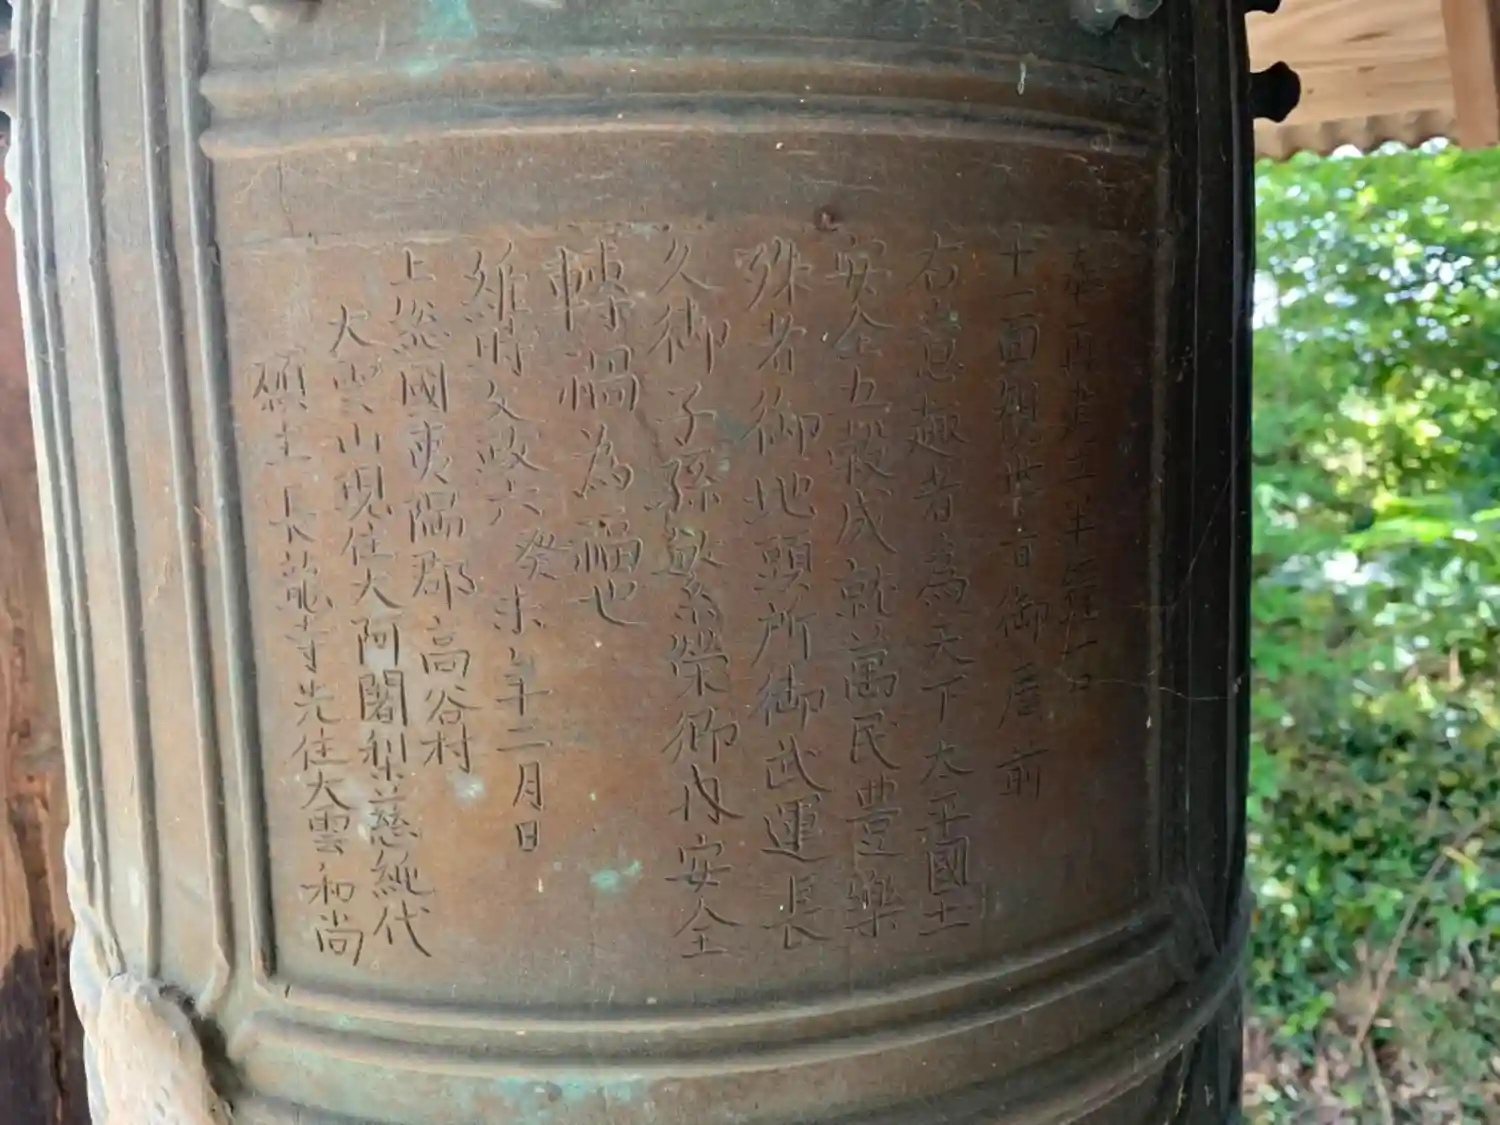 奉再建立半鐘一口
十一面観世音御宝前
右意趣者為天下太平國土
安全五穀成就萬民豊樂
殊者御地頭所御武運長
久御子孫繁榮郷内安全
轉禍為福也
維時文政六癸未年二月日
上総國夷隅郡高谷村
大雲山現住大阿闍梨慈純代
願主長龍寺先住大雲和尚